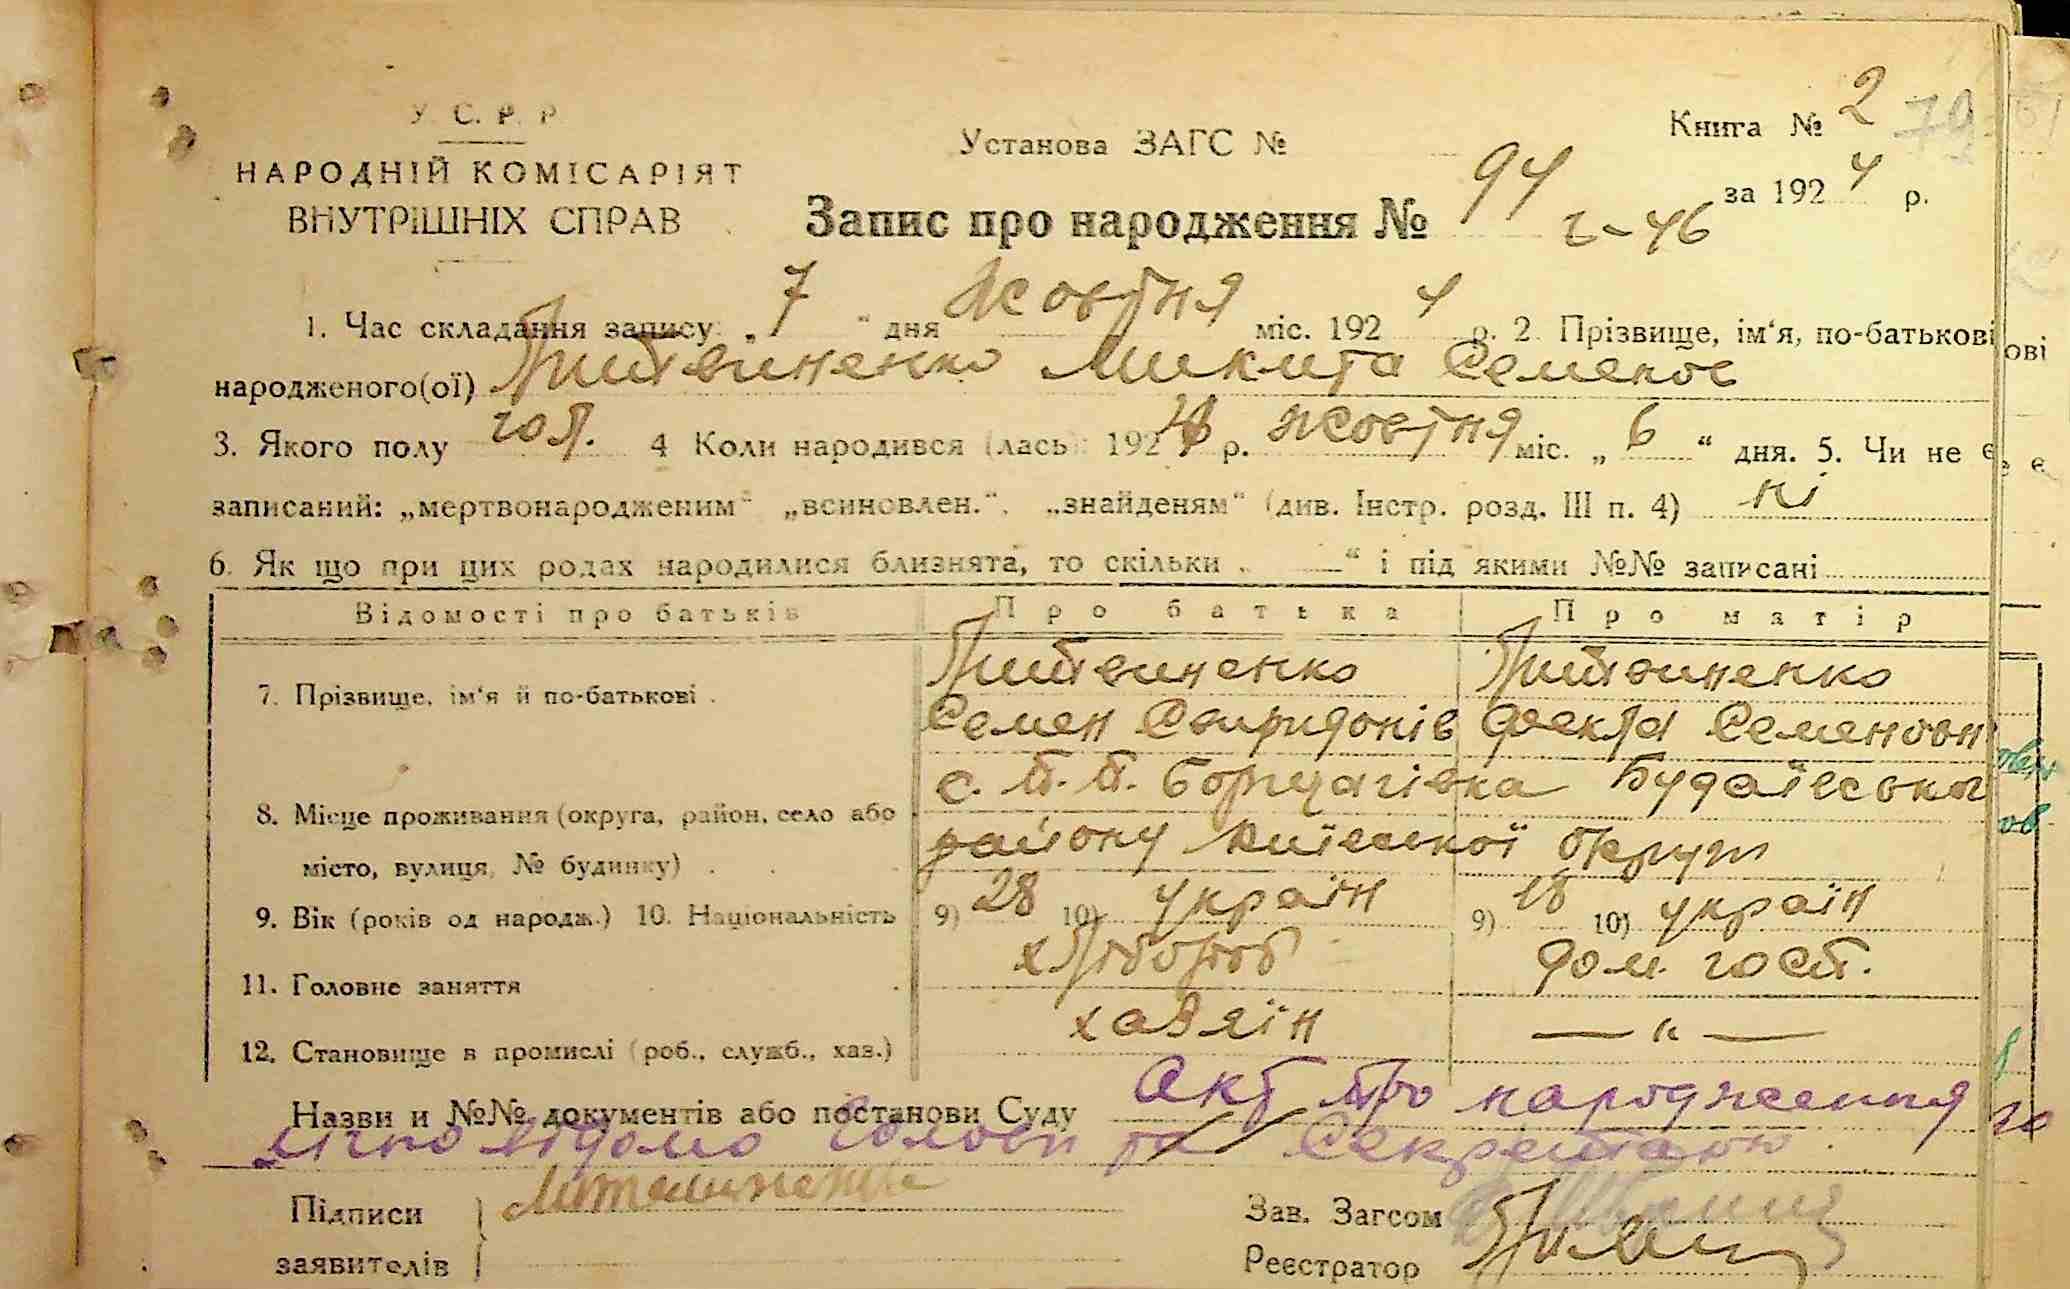 У. С. Р. Р.
НАРОДНІЙ КОМІСАРІЯТ
ВНУТРІШНІХ СПРАВ
Установа ЗАГС №
Книга № 2 79
за 1924 р.
Запис про народження № 94 г-46
1. Час складання запису: „7“ дня Жовтня міс. 1924 р. 2. Прізвище, ім‘я, по-батькові
народженого(ої) Литвиненко Микита Семенов
3. Якого полу чол. 4 Коли народився (лась) 1924 р. жовтня міс. „6“ дня. 5. Чи не є
записаний: „мертвонародженим“ „всиновлен.“, „знайденям“ (див. Інстр. розд. III п. 4) ні
6. Як що при цих родах народилися близнята, то скільки „ “ і під якими №№ записані
Відомості про батьків Про батька Про матір
7. Прізвище, ім‘я й по-батькові . Литвиненко Литвиненко
Семен Свиридонів Фекла Семеновн
8. Місце проживання (округа, район, село або с. П. П. Борщагівка Будаївського
місто, вулиця, № будинку) . району Київської округи
9. Вік (років од народж.) 10. Національність 9) 28 10) україн 9) 18 10) україн
11. Головне заняття хлібороб дом. госп.
12. Становище в промислі (роб., служб., хаз.) хазяїн — „ —
Назви и №№ документів або постанови Суду Акт про народження
лічно відомо Голови та Секретарю
Підписи Литвиненко
заявителів
Зав. Загсом
Реєстратор